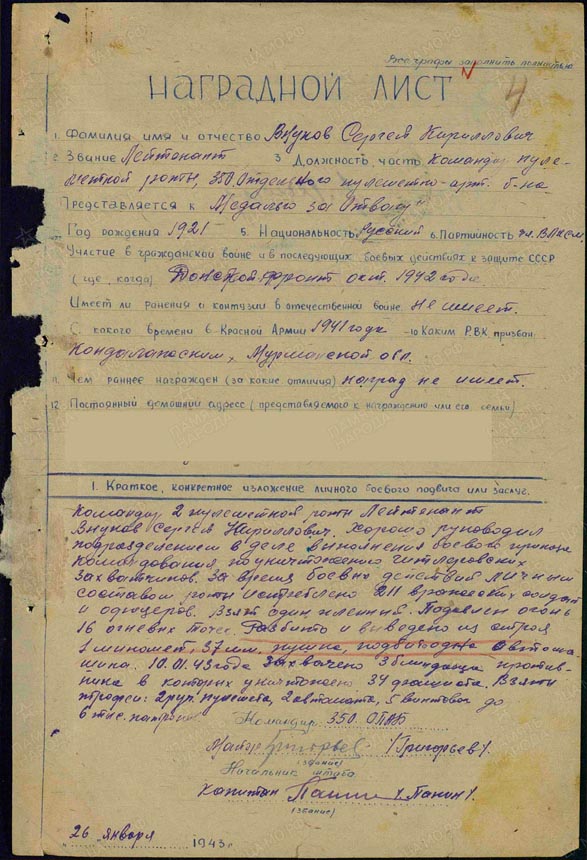 Все графы заполнить полностью
4
НАГРАДНОЙ ЛИСТ
1. Фамилия имя и отчество Внуков Сергей Кириллович
2. Звание Лейтенант 3 Должность, часть командир пуле-
метной роты, 350 Отдельного пулеметно-арт. б-на
Представляется к Медалью за Отвагу"
4. Год рождения 1921 5. Национальность Русский 6. Партийность чл. ВЛКСМ
Участие в гражданской войне и в последующих боевых действиях к защите СССР
(где, когда) Донской-фронт окт. 1942 года
Имеет ли ранения и контузии в отечественной войне не имеет.
С какого времени в Красной Армии 1941 года 10 Каким РВК призван
Кандалакским, Мурманской обл.
11. Чем раннее награжден (за какие отличия) наград не имеет.
12. Постоянный домашний адресс (представляемого к награждению или его семьи)
I. Краткое, конкретное изложение личного боевого подвига или заслуг.
Командир 2 пулеметной роты Лейтенант
Внуков Сергей Кириллович. Хорошо руководил
подразделением в деле выполнения боевого приказа
командования, по уничтожению гитлеровских
захватчиков. За время боевых действий личным
составом роты истреблено 211 вражеских солдат
и офицеров. Взят один пленный. Подавлен огонь
16 огневых точек. Разбито и выведено из строя
1 миномет, 37 мм. пушка, подбита одна автома-
шина. 10.01.43 года захвачено 3 блиндажа против-
ника в которых уничтожено 34 фашиста. Взяты
трофеи: 2 руч. пулемета, 2 автомата, 5 винтовок до
6 тыс. патронов
Командир 350 ОПАБ
Майор Григорьев /Григорьев/.
(звание)
Начальник штаба
Капитан Панин /Панин/.
(звание)
„26 января 1943 г